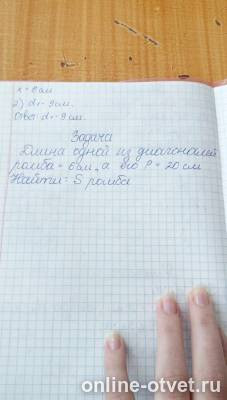 x = 6 см
2) d₁ - 9 см.
Ответ: d₁ - 9 см.
Задача
Длина одной из диагоналей
ромба = 6 см, а его P = 20 см
Найти = S ромба
online-otvet.ru